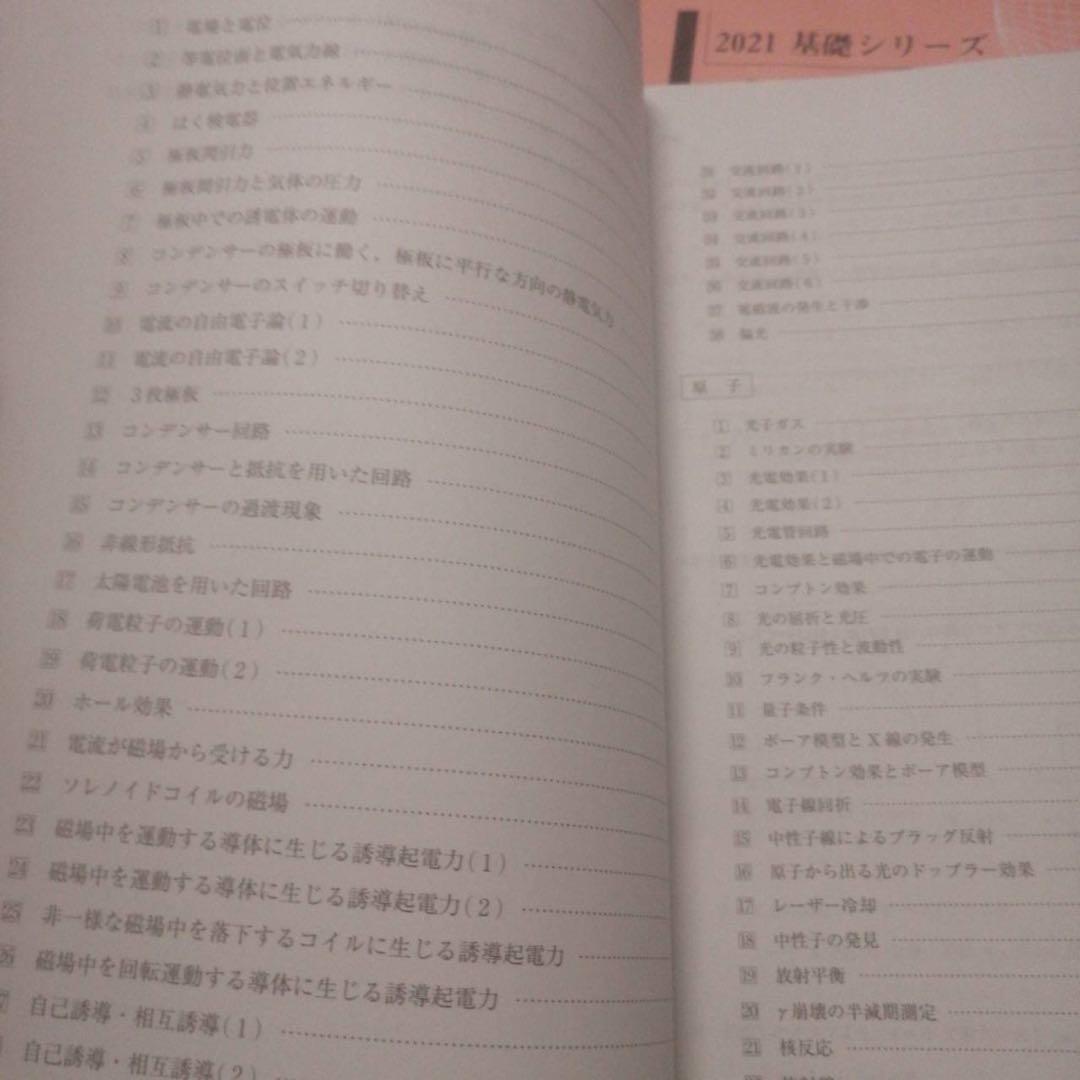 ① 電場と電位
② 等電位面と電気力線
③ 静電気力と位置エネルギー
④ はく検電器
⑤ 極板間引力
⑥ 極板間引力と気体の圧力
⑦ 極板中での誘電体の運動
⑧ コンデンサーの極板に働く，極板に平行な方向の静電気力
⑨ コンデンサーのスイッチ切り替え
10 電流の自由電子論(1)
11 電流の自由電子論(2)
12 3枚極板
13 コンデンサー回路
14 コンデンサーと抵抗を用いた回路
15 コンデンサーの過渡現象
16 非線形抵抗
17 太陽電池を用いた回路
18 荷電粒子の運動(1)
19 荷電粒子の運動(2)
20 ホール効果
21 電流が磁場から受ける力
22 ソレノイドコイルの磁場
23 磁場中を運動する導体に生じる誘導起電力(1)
24 磁場中を運動する導体に生じる誘導起電力(2)
25 非一様な磁場中を落下するコイルに生じる誘導起電力
26 磁場中を回転運動する導体に生じる誘導起電力
自己誘導・相互誘導(1)
自己誘導・相互誘導(2)
2021 基礎シリーズ
交流回路(1)
32 交流回路(2)
33 交流回路(3)
34 交流回路(4)
35 交流回路(5)
36 交流回路(6)
37 電磁波の発生と干渉
38 偏光
原 子
1 光子ガス
2 ミリカンの実験
3 光電効果(1)
4 光電効果(2)
5 光電管回路
6 光電効果と磁場中での電子の運動
7 コンプトン効果
8 光の屈折と光圧
9 光の粒子性と波動性
10 フランク・ヘルツの実験
11 量子条件
12 ボーア模型とX線の発生
13 コンプトン効果とボーア模型
14 電子線回折
15 中性子線によるブラッグ反射
16 原子から出る光のドップラー効果
17 レーザー冷却
18 中性子の発見
19 放射平衡
20 γ崩壊の半減期測定
21 核反応